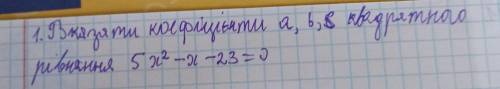 1. Вказати коефіцієнти a, b, c квадратного
рівняння 5x² - x - 23 = 0